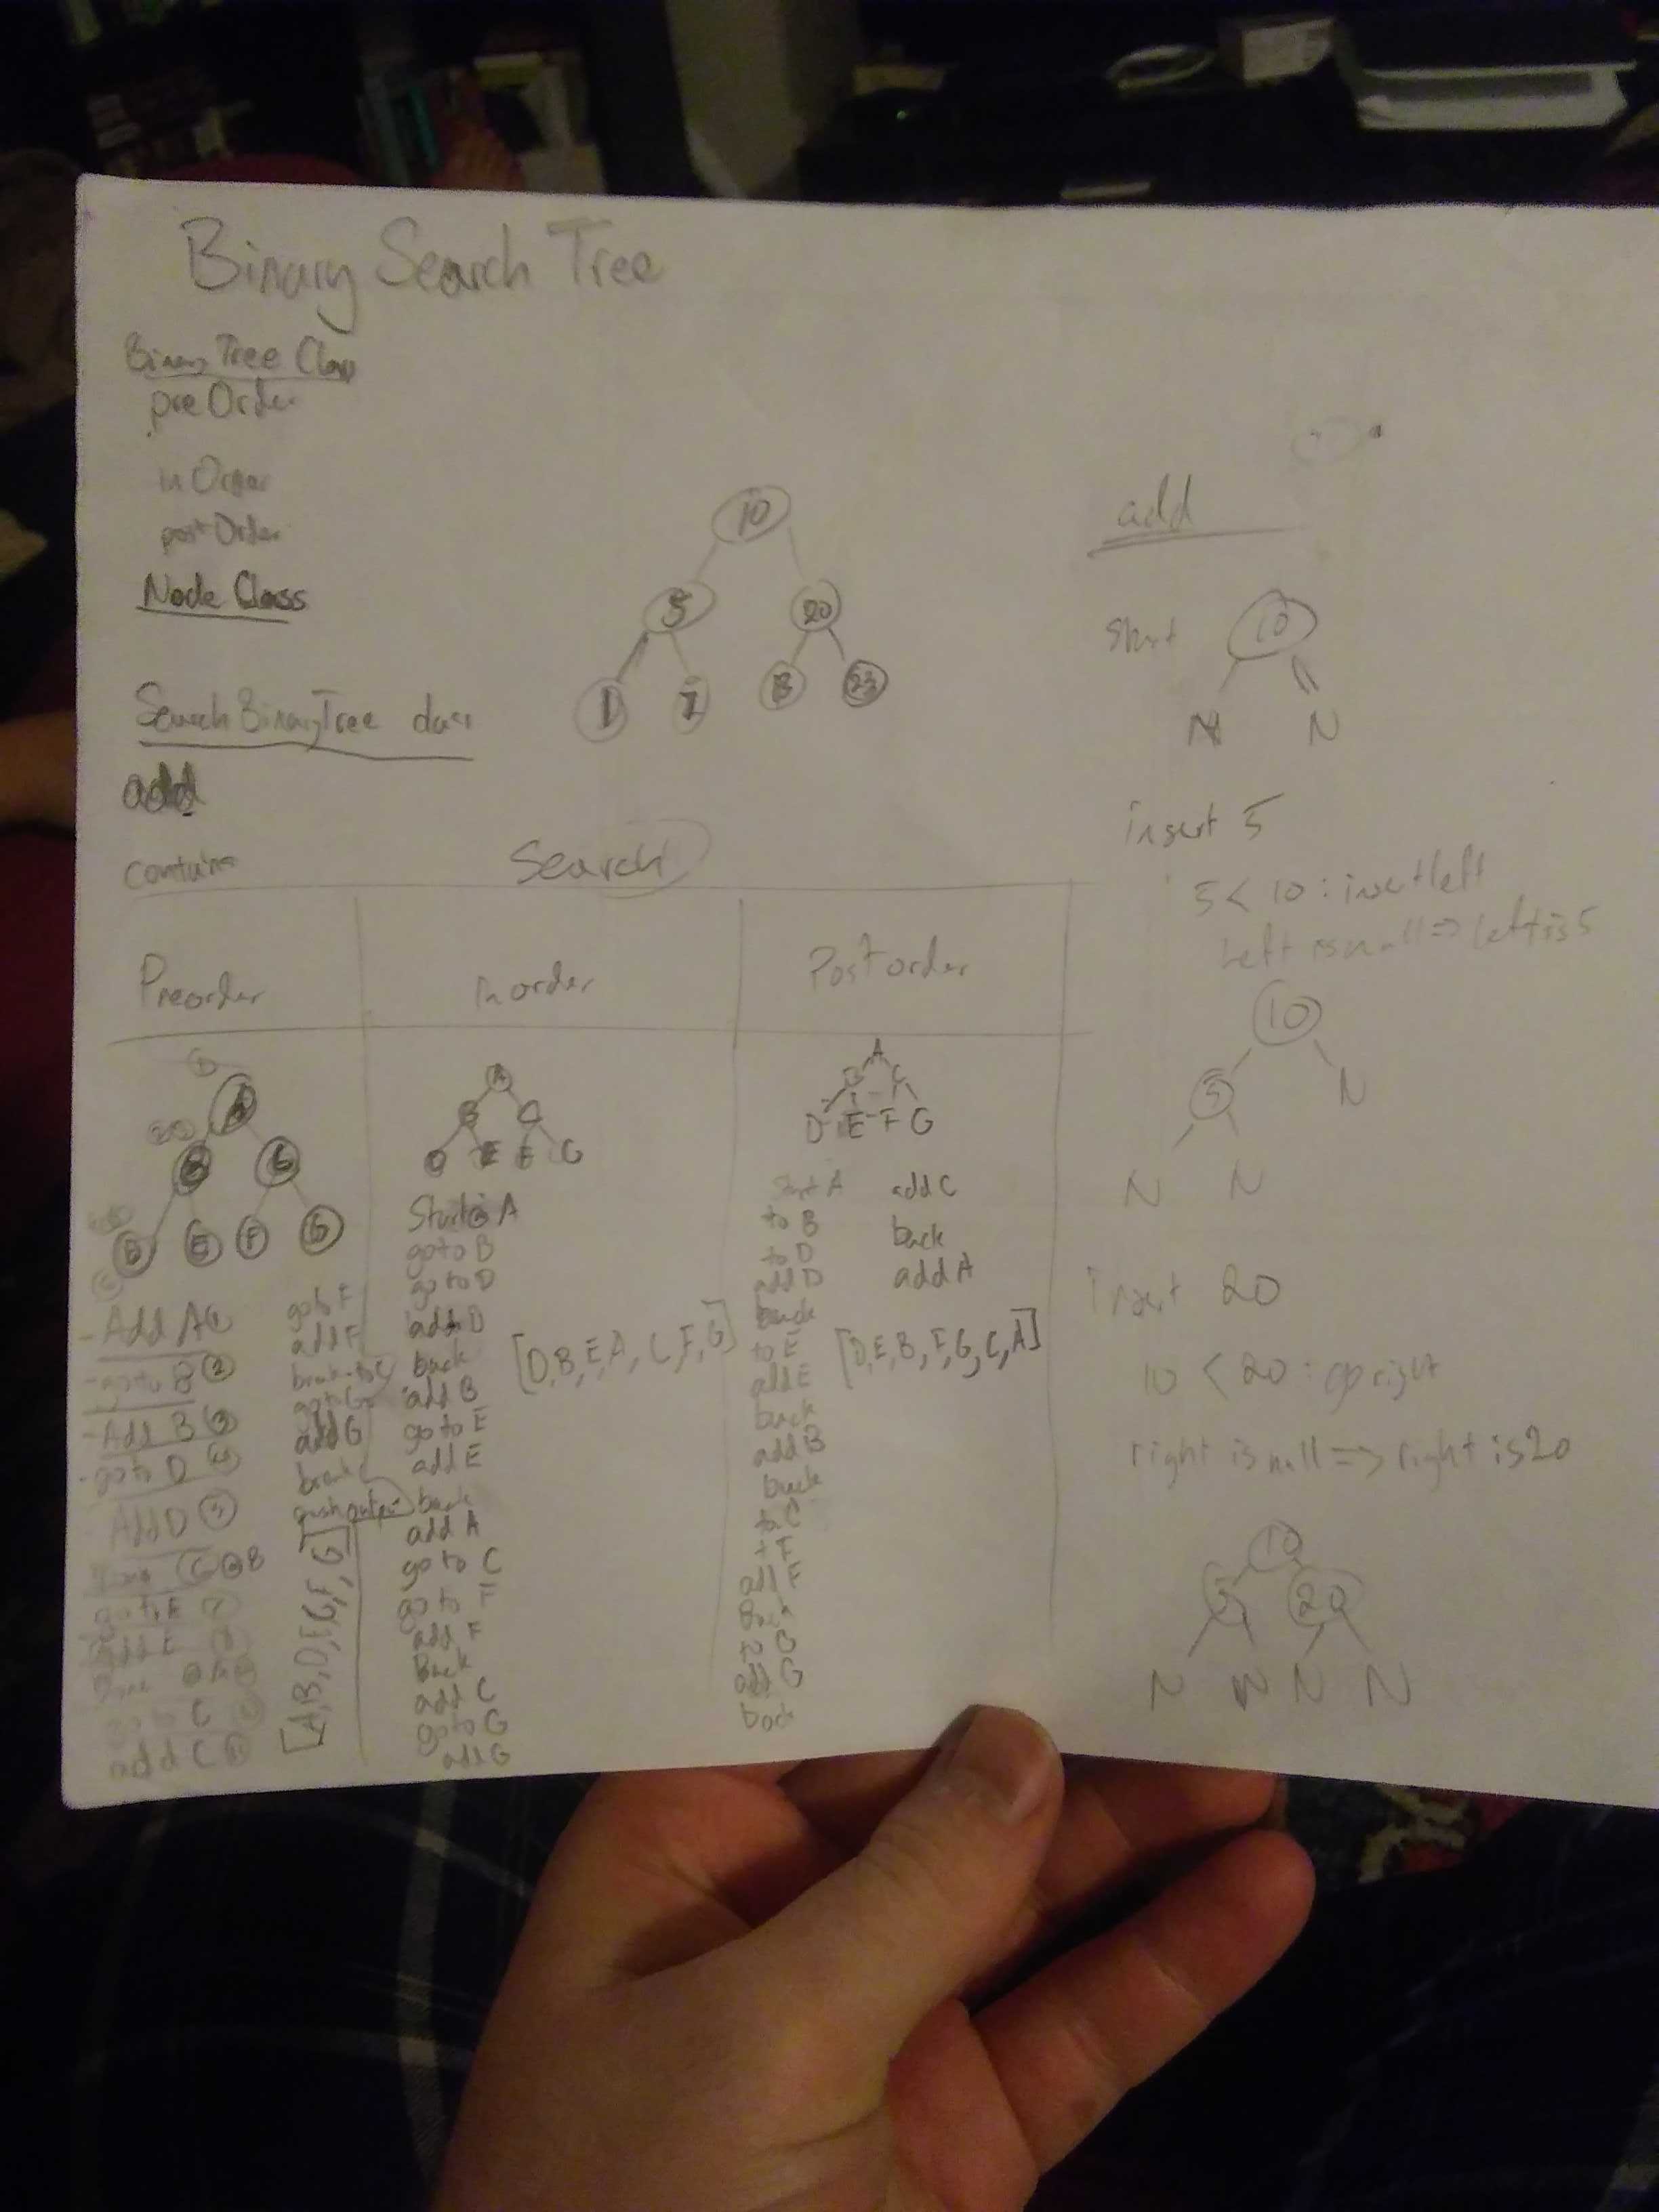 Binary Search Tree
Binary Tree Class
preOrder
in Order
postOrder
Node Class
SearchBinaryTree class
add
contains
10
5 20
1 7 23
Search
Preorder
A
B C
D E F G
- Add A
- go to B 2
- Add B 3
- go to D
Add D
go to E
add E
C
add C
go to F
add F
add G
push output
Inorder
A
B C
D E F G
Start @ A
go to B
go to D
add D
back
add B
go to E
add E
back
add A
go to C
go to F
add F
Back
add C
go to G
add G
[D,B,E,A, C,F,G]
Post order
A
B C
D E F G
Start A
to B
to D
add D
back
to E
add E
back
add B
back
to C
add F
add G
back
add C
back
add A
[D,E,B,F,G,C,A]
add
start 10
N N
insert 5
5 < 10 : insert left
Left is null => left is 5
10
5 N
N N
insert 20
10 < 20 : go right
right is null => right is 20
10
5 20
N N N N